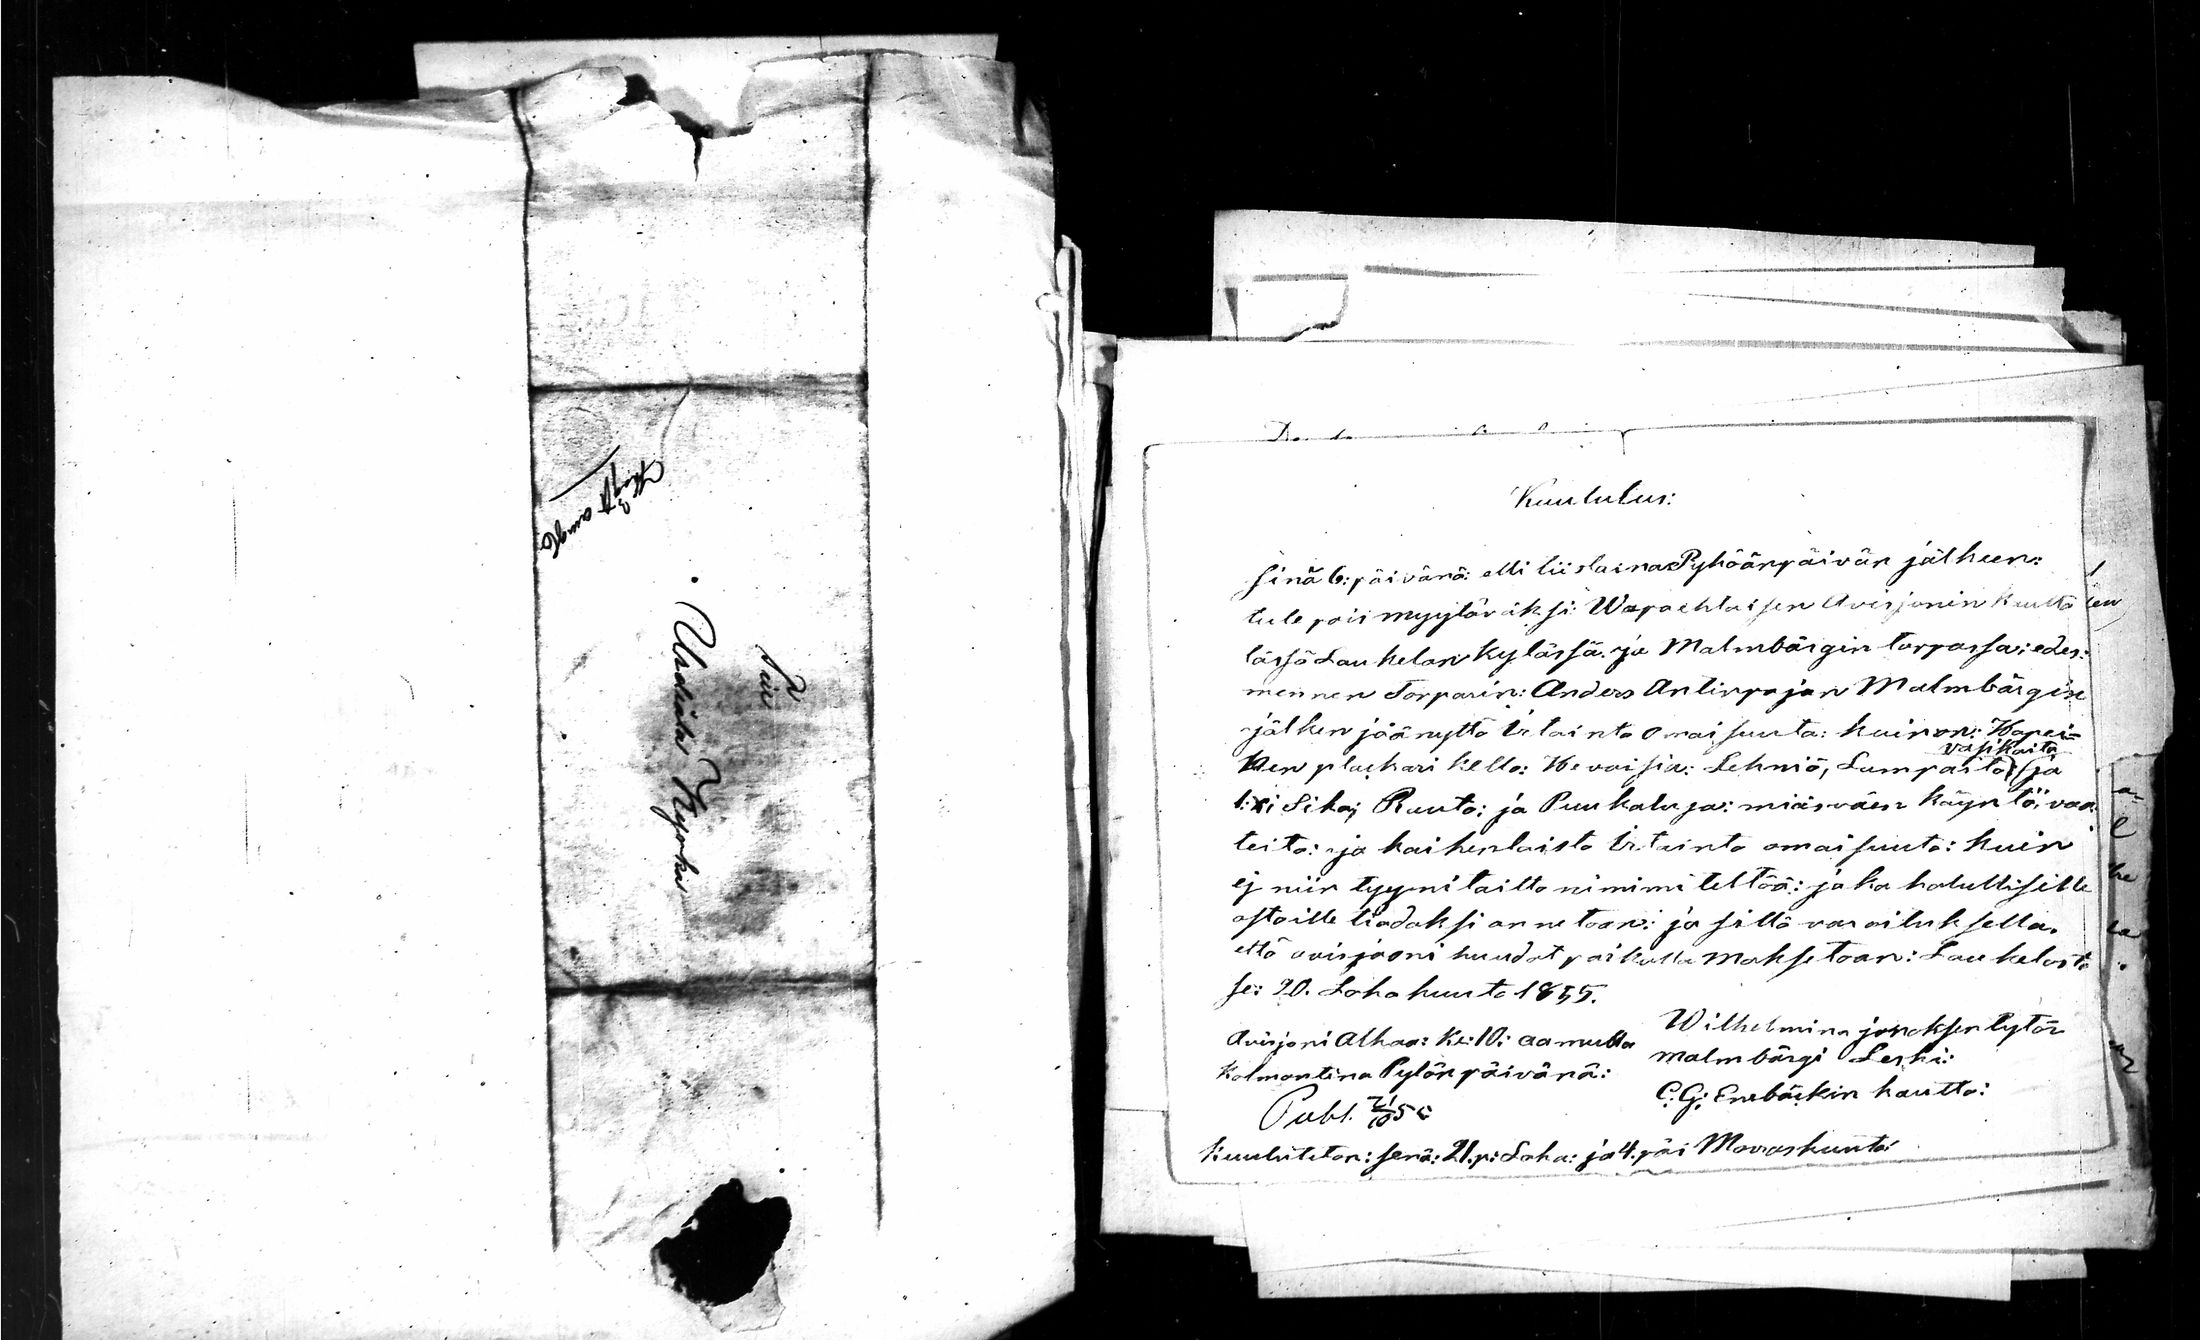 Kuulutus:
Sinä 6: päivänä: elli tiistaina Pyhäänpäivän jälkeen:
tule pois myytäväksi: Wapaehtaisen Avisjonin kautta
tässä Laukelan kylässä: ja Malmbärgin torpassa: edes:
mennen Torparin: Anders Antinpojan Malmbärgin
jälken jäänyttä Irtainta omaisuuta: kuin on: Hopei-
vasikoita
nen plakkari kello: Hevoisia: Lehmiä, Lampaita: ja
1:xi Sika; Rauta: ja Puukaluja: miäsväen käyntö, vaa
teita: ja kaikenlaista Irtainta omaisuuta: kuin
ej niin tyyni taitta nimimiteltää: joka halullisille
ostoille tiadoksi annetaan: ja sillä varoituksella.
että avisjooni huudot paikalla maksetaan: Laukelasta
se: 20. Loka kuuta 1855.
Avisjoni Alkaa: Kl: 10: aamulla
kolmantina Pylän päivänä:
Wilhelmina jonaksen tytär
Malmbärgi Leski:
C. G: Enebäckin kautta:
Publ. 21/10 55
Kuulutetan: senä: 21. p: Loka: ja 4. päi Marraskuuta
Till
Usdala Kyrka